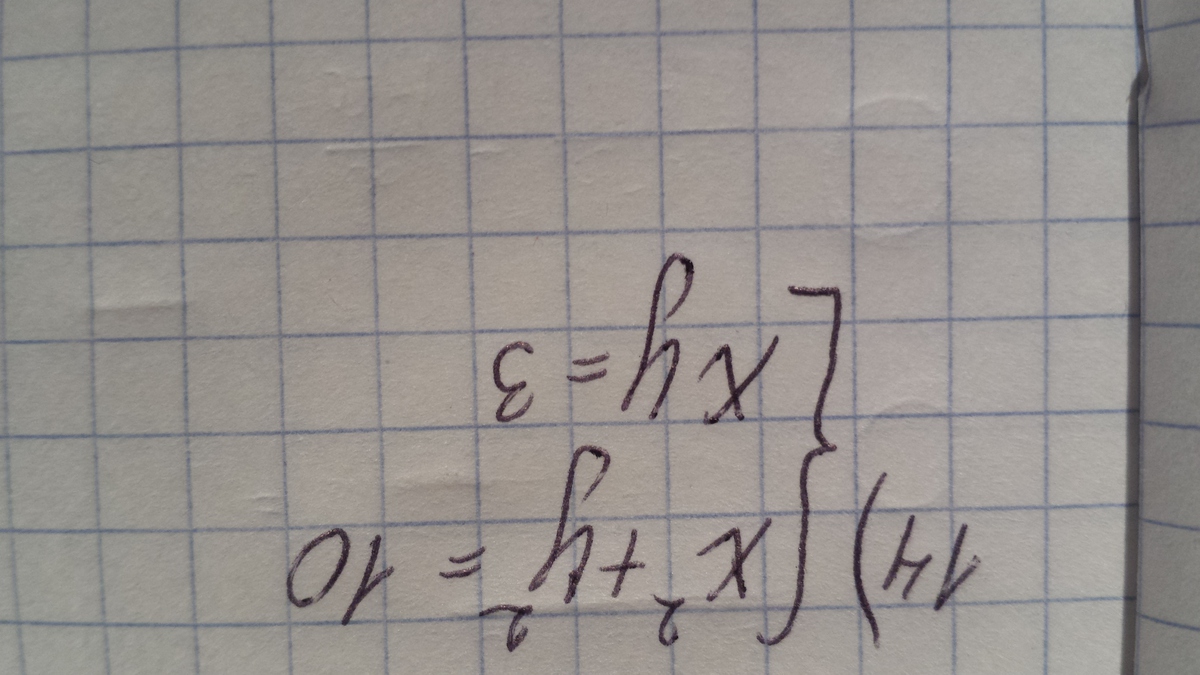 14) { x² + y² = 10
xy = 3